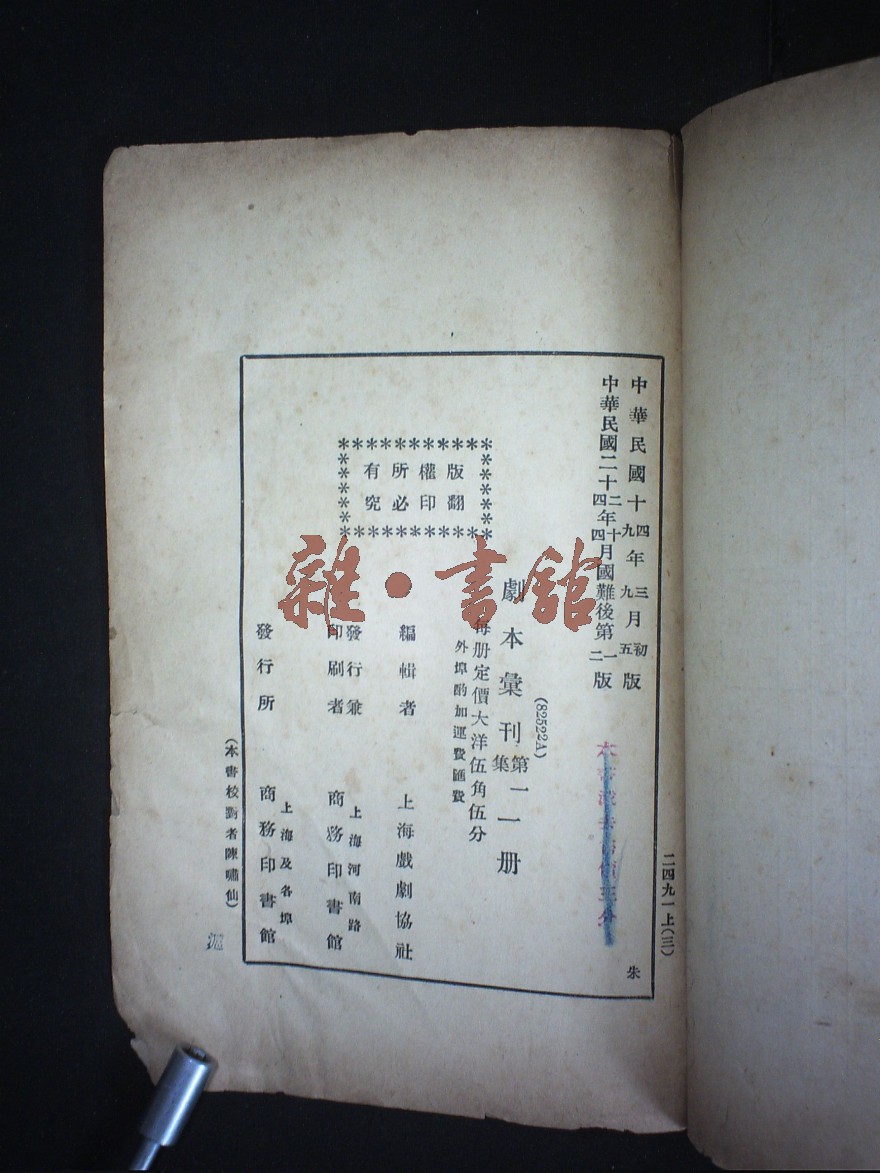 二四九一上(三)
中華民國十四九年三九月初五版
中華民國二十二四年十四月國難後第一二版
朱
(82522A)
劇本彙刊第集一一册
每册定價大洋伍角伍分
外埠酌加運費匯費
版權所有
翻印必究
編輯者 上海戲劇協社
發行兼印刷者 上海河南路 商務印書館
發行所 上海及各埠 商務印書館
(本書校對者陳嘯仙)
雜·書館